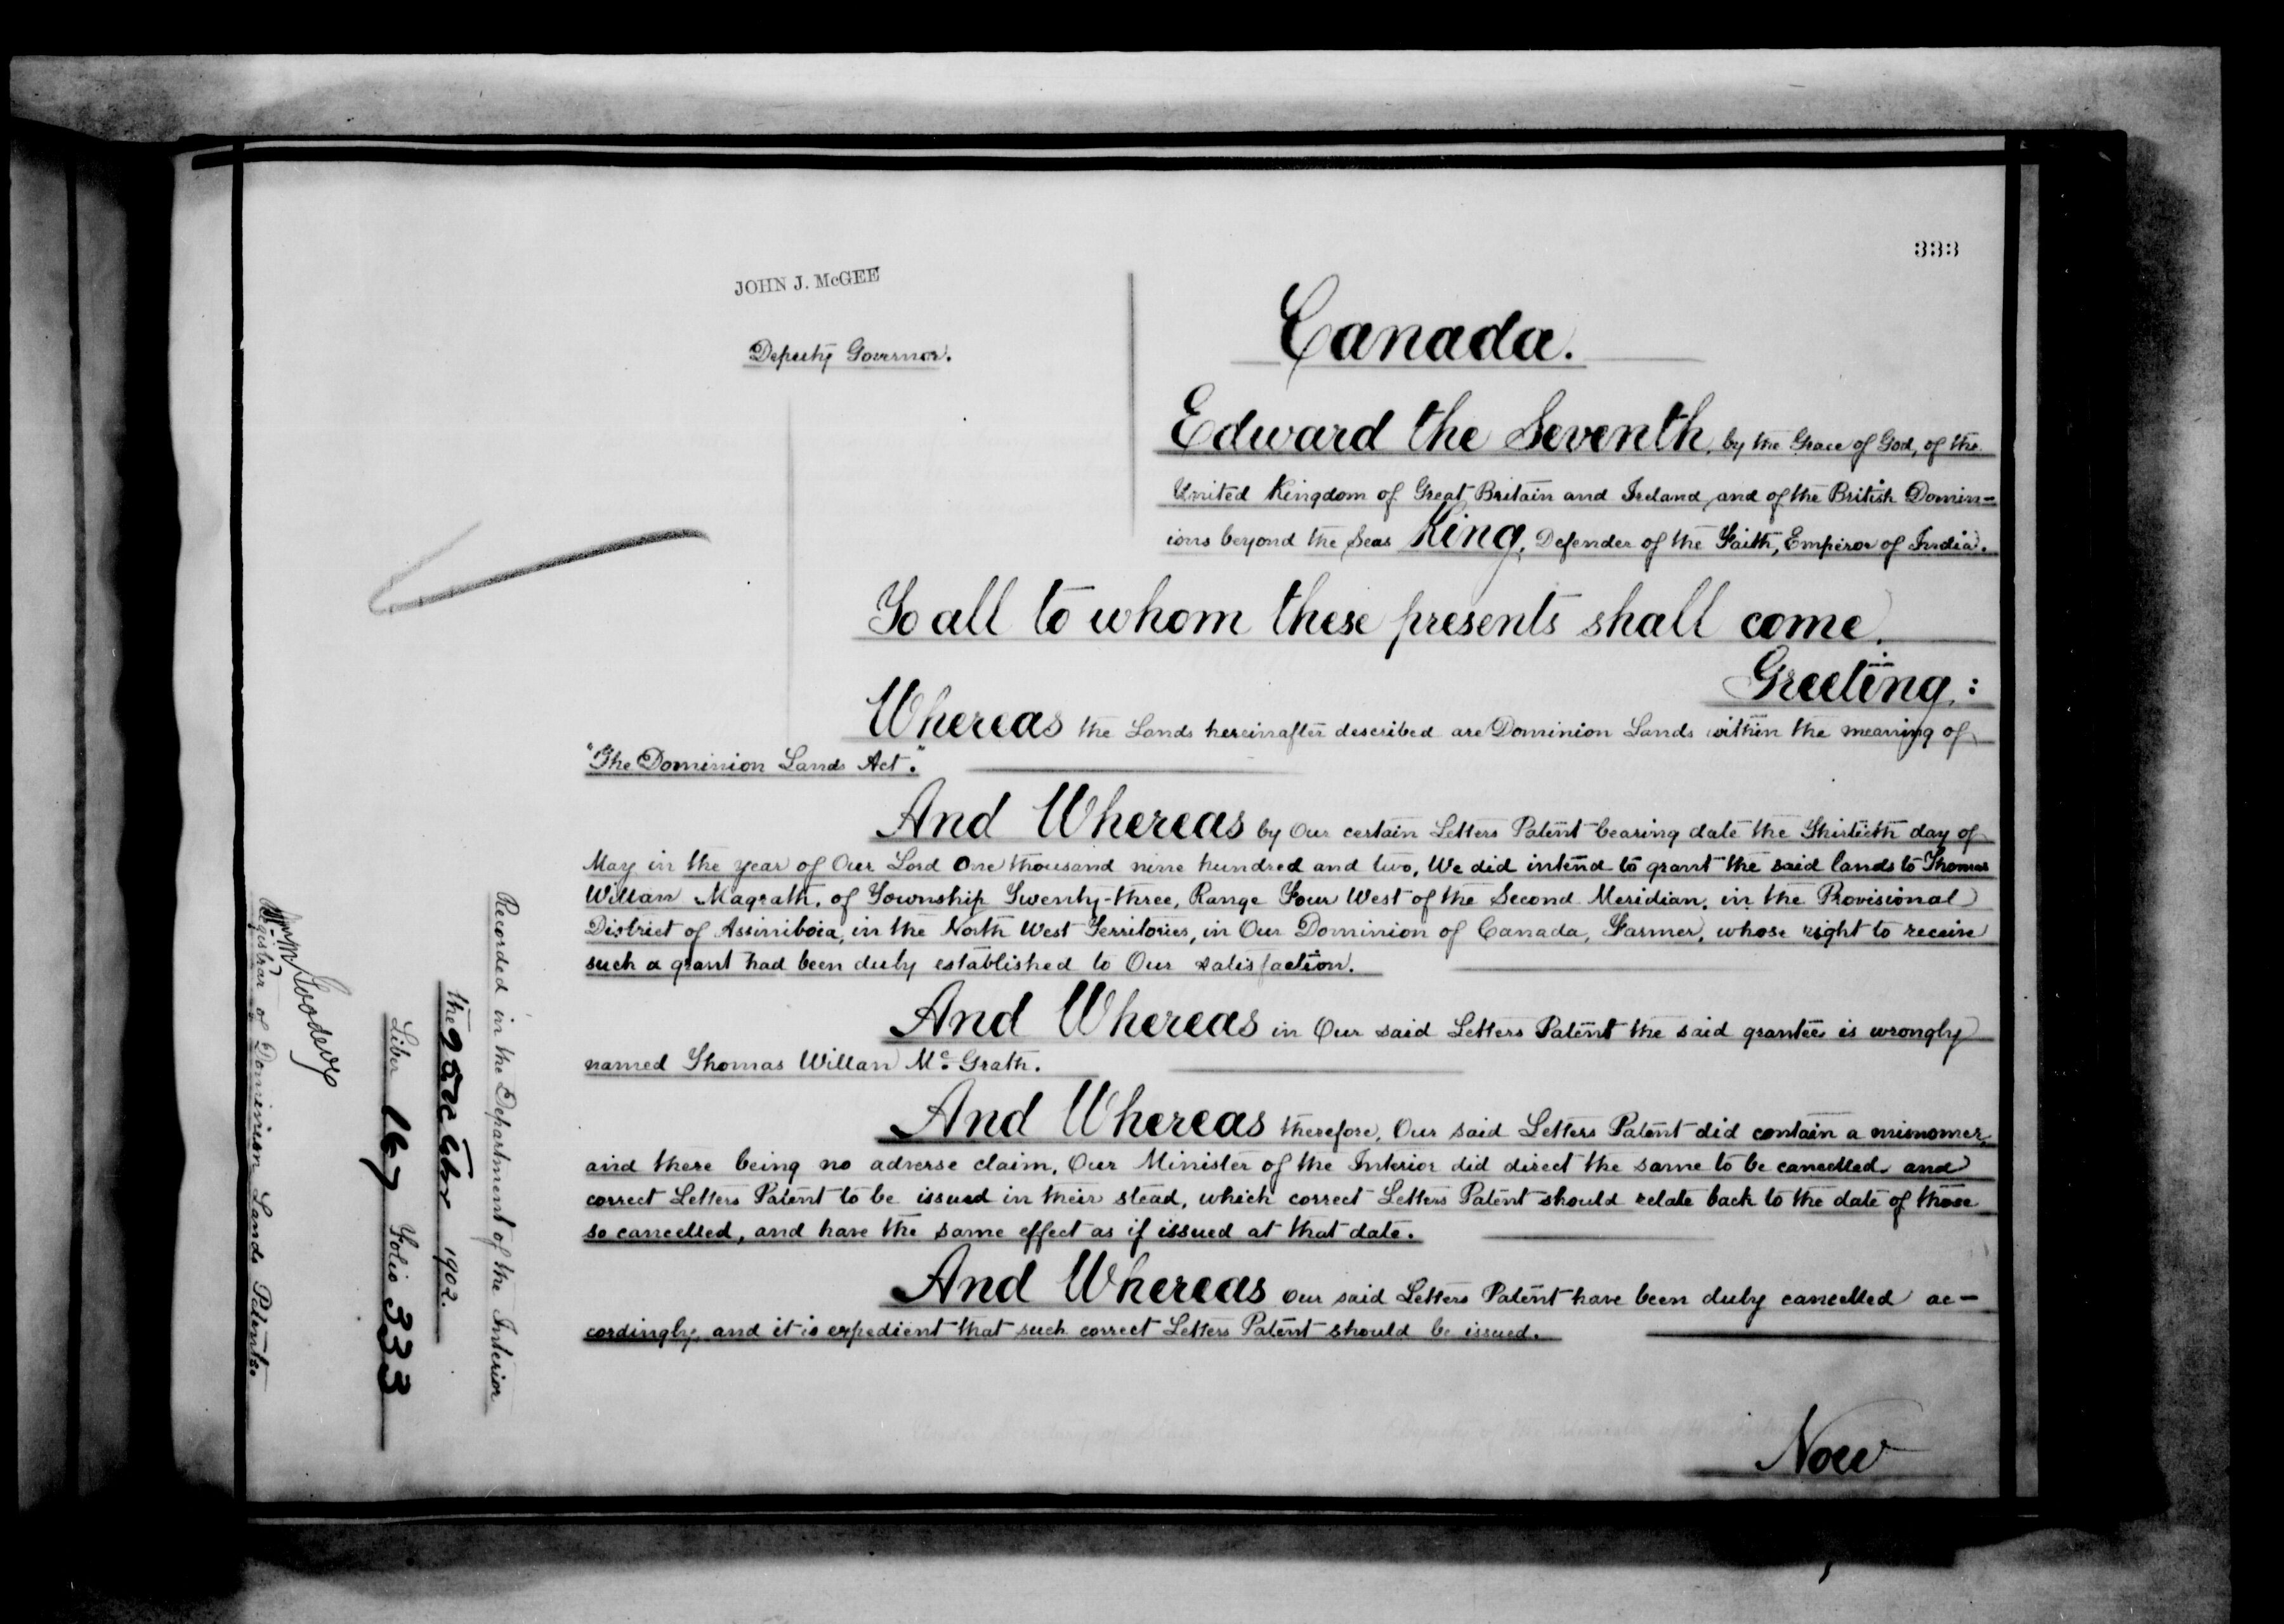 333
JOHN J. McGEE
Deputy Governor.
Canada.
Edward the Seventh, by the Grace of God, of the
United Kingdom of Great Britain and Ireland, and of the British Domin-
ions beyond the Seas King, Defender of the Faith, Emperor of India.
To all to whom these presents shall come,
Greeting:
Whereas the Lands hereinafter described are Dominion Lands within the meaning of
"The Dominion Lands Act."
And Whereas by Our certain Letters Patent bearing date the Thirtieth day of
May in the year of Our Lord One thousand nine hundred and two, We did intend to grant the said lands to Thomas
Willan Magrath, of Township Twenty-three, Range Four West of the Second Meridian, in the Provisional
District of Assiniboia, in the North West Territories, in Our Dominion of Canada, Farmer, whose right to receive
such a grant had been duly established to Our satisfaction.
And Whereas in Our said Letters Patent the said grantee is wrongly
named Thomas Willan Mc Grath.
And Whereas therefore, Our said Letters Patent did contain a misnomer,
and there being no adverse claim, Our Minister of the Interior did direct the same to be cancelled and
correct Letters Patent to be issued in their stead, which correct Letters Patent should relate back to the date of those
so cancelled, and have the same effect as if issued at that date.
And Whereas our said Letters Patent have been duly cancelled ac-
cordingly, and it is expedient that such correct Letters Patent should be issued.
Now
Recorded in the Department of the Interior
the 9 1902.
Liber 167 Folio 333
Registrar of Dominion Lands Patents.